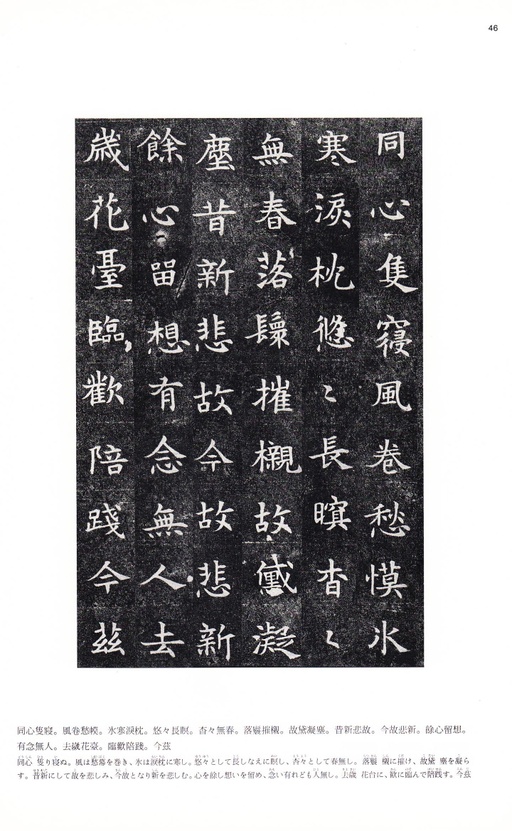 46
同心隻寑風卷愁慔氷
寒淚枕悠〻長暝杳〻
無春落鬟摧櫬故黛凝
塵昔新悲故今故悲新
餘心留想有念無人去
歲花臺臨歡陪踐今茲
同心隻寝。風卷愁幙。氷寒淚枕。悠々長暝。杳々無春。落鬟摧櫬。故黛凝塵。昔新悲故。今故悲新。餘心留想。
有念無人。去歲花臺。臨歡陪踐。今茲
同心 隻り寝ぬ。風は愁幕を巻き、氷は涙枕に寒し。悠々として長しなえに暝し、杳々として春無し。落鬟 櫬に摧け、故黛 塵を凝ら
す。昔新にして故を悲しみ、今故となり新を悲しむ。心を餘し想いを留め、念い有れども人無し。去歳 花台に、歓に臨んで陪践す。今茲